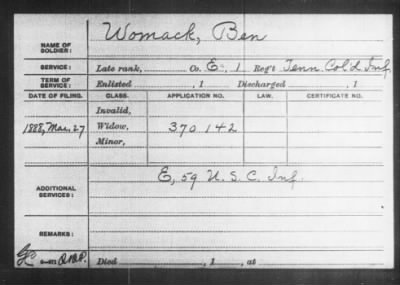 NAME OF SOLDIER: Womack, Ben
SERVICE: Late rank, Co. E, 1 Reg't Tenn Col'd Inf.
TERM OF SERVICE: Enlisted , 1 Discharged , 1
DATE OF FILING. CLASS. APPLICATION NO. LAW. CERTIFICATE NO.
Invalid,
1888, Mar. 27 Widow, 370142
Minor,
ADDITIONAL SERVICES: E, 59 U.S.C. Inf.
REMARKS:
Died , 1 , at